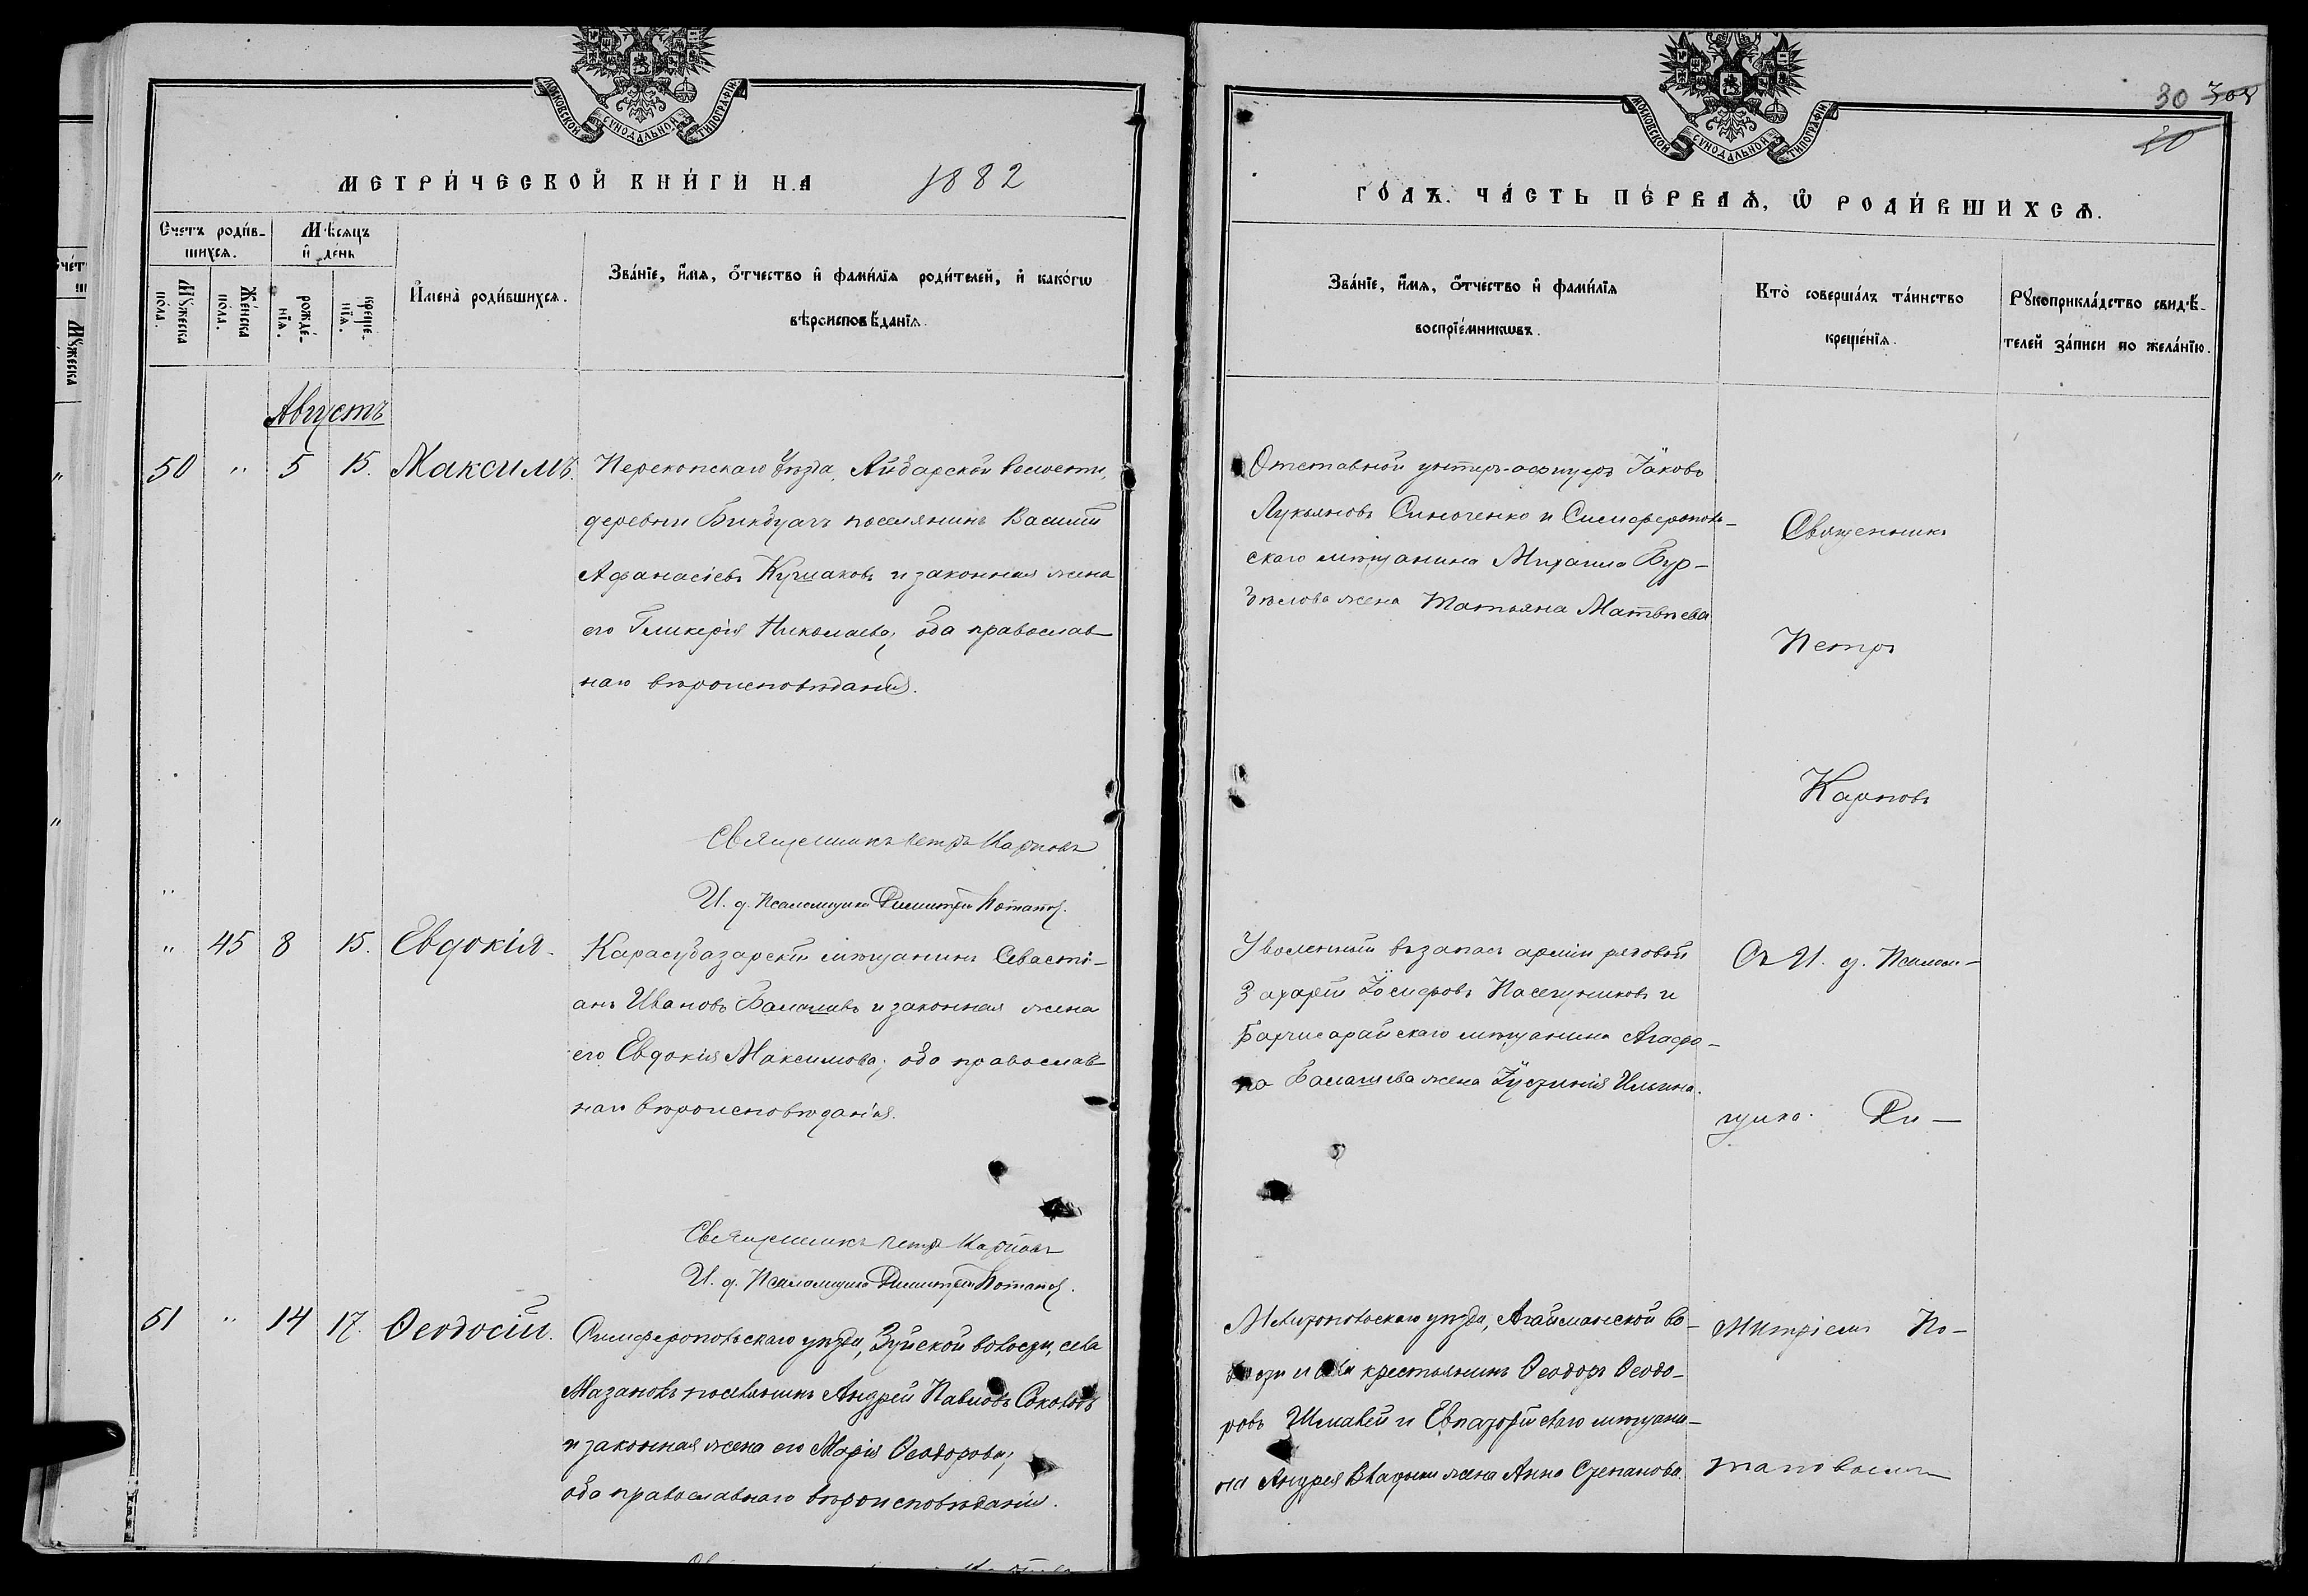 МОСКОВСКОЙ СѴНОДАЛЬНОЙ ТИПОГРАФІИ
МЕТРИ́ЧЕСКОЙ КНИ́ГИ НА 1882
Счетъ роди́в-
шихсѧ.
Мѣсяцъ
и҆ де́нь
Мꙋжеска
по́ла.
Же́нска
по́ла.
рожде́-
нїѧ.
креще́-
нїѧ.
И҆мена̀ роди́вшихсѧ.
Зва́нїе, и҆́мѧ, ѻ҆́тчество и҆ фами́лїѧ роди́телей, и҆ како́гѡ
вѣроисповѣ́данїѧ.
Августъ
50 " 5 15. Максимъ.
Перекопскаго уѣзда, Айбарской волости,
деревни поселянинъ Василій
Афанасіевъ и законная жена
его Гликерія Николаева, оба православ-
наго вѣроисповѣданія.
Священникъ Петръ Карповъ
И. д. Псаломщика Димитрій Потаповъ.
" 45 8 15. Евдокія.
Карасубазарскій мѣщанинъ Севасті-
анъ Ивановъ Балашевъ и законная жена
его Евдокія Максимова; оба православ-
наго вѣроисповѣданія.
Священникъ Петръ Карповъ
И. д. Псаломщика Димитрій Потаповъ.
51 " 14 17. Ѳеодосій.
Симферопольскаго уѣзда, Зуйской волости, села
Мазанокъ поселянинъ Андрей Павловъ Соколовъ
и законная жена его Марія Ѳеодорова;
оба православнаго вѣроисповѣданія.
МОСКОВСКОЙ СѴНОДАЛЬНОЙ ТИПОГРАФІИ
30 308
20
ГО́ДЪ. ЧА́СТЬ ПЕ́РВАѦ, Ѡ҆ РОДИ́ВШИХСѦ.
Зва́нїе, и҆́мѧ, ѻ҆́тчество и҆ фами́лїѧ
воспрїе́мникѡвъ.
Кто̀ соверша́лъ та́инство
креще́нїѧ.
Рꙋкоприкла́дство свидѣ́-
телей за́писи по жела́нїю.
Отставной унтеръ-офицеръ Іаковъ
Лукьяновъ и Симферополь-
скаго мѣщанина Михаила Бур-
жена Татьяна Матвѣева
Священникъ
Петръ
Карповъ
Уволенный въ запасъ арміи рядовой
Захарій Іосифовъ Пасечниковъ и
Бахчисарайскаго мѣщанина Агафо-
на Балашева жена Іустинія Ильина.
Съ И. д. Псалом-
щика Ди-
Мелитопольскаго уѣзда, Агайманской во-
лости и села крестьянинъ Ѳеодоръ Ѳеодо-
ровъ и Евпаторійскаго мѣщани-
на Андрея жена Анна Степанова.
митріемъ По-
таповымъ